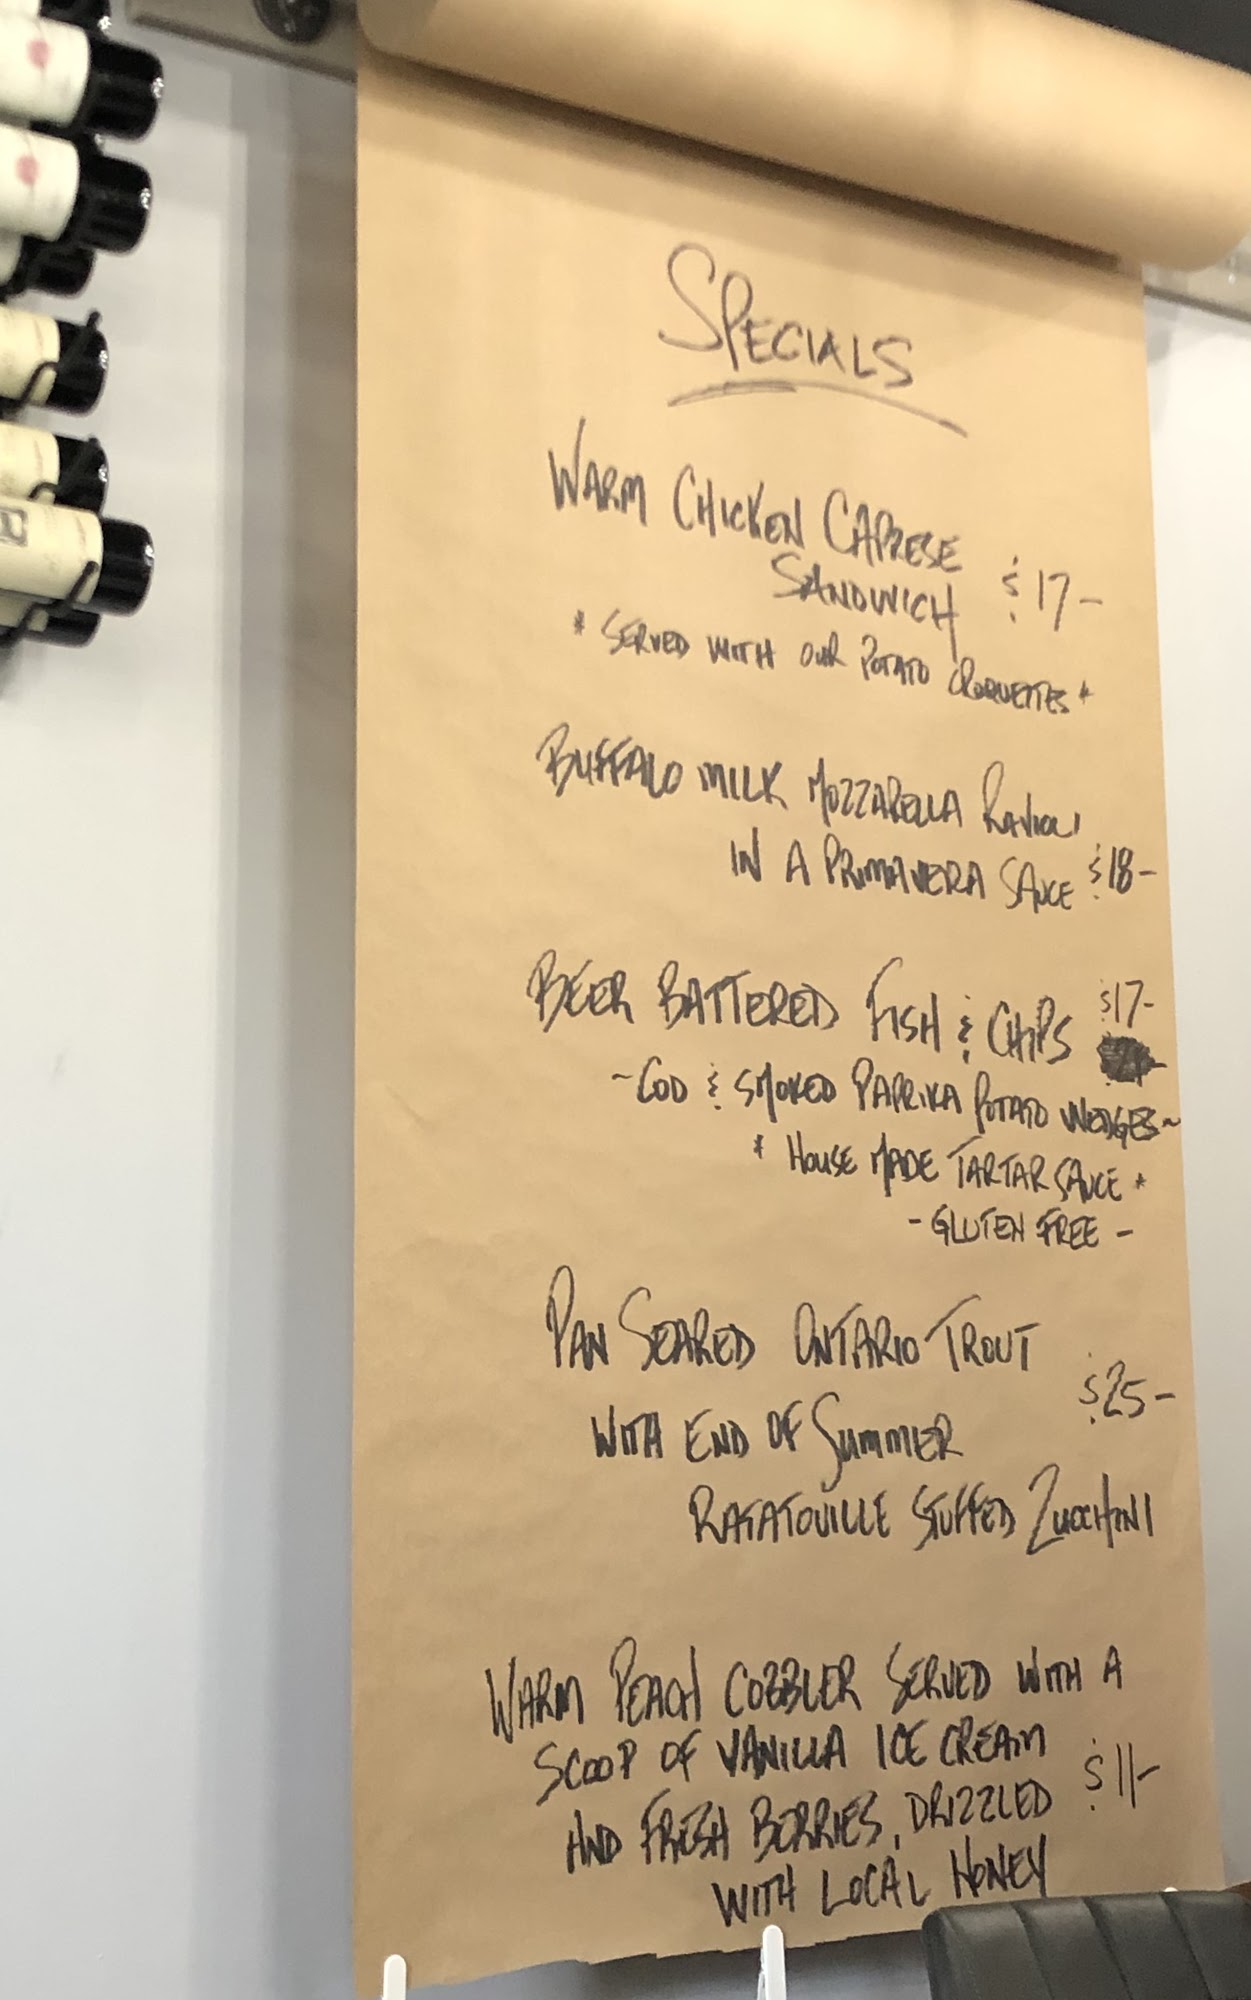 SPECIALS
WARM CHICKEN CAPRESE
SANDWICH $17-
* SERVED WITH OUR POTATO CROQUETTES *
BUFFALO MILK MOZZARELLA RAVIOLI
IN A PRIMAVERA SAUCE $18-
BEER BATTERED FISH & CHIPS $17-
~COD & SMOKED PAPRIKA POTATO WEDGES~
* HOUSE MADE TARTAR SAUCE *
- GLUTEN FREE -
PAN SEARED ONTARIO TROUT
WITH END OF SUMMER $25-
RATATOUILLE STUFFED ZUCCHINI
WARM PEACH COBBLER SERVED WITH A
SCOOP OF VANILLA ICE CREAM
AND FRESH BERRIES, DRIZZLED $11-
WITH LOCAL HONEY